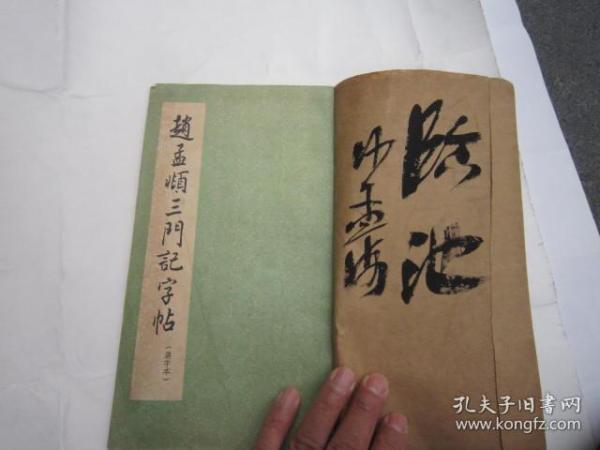 趙孟頫三門記字帖
(選字本)
臨池
沙孟海
孔夫子旧书网
www.kongfz.com